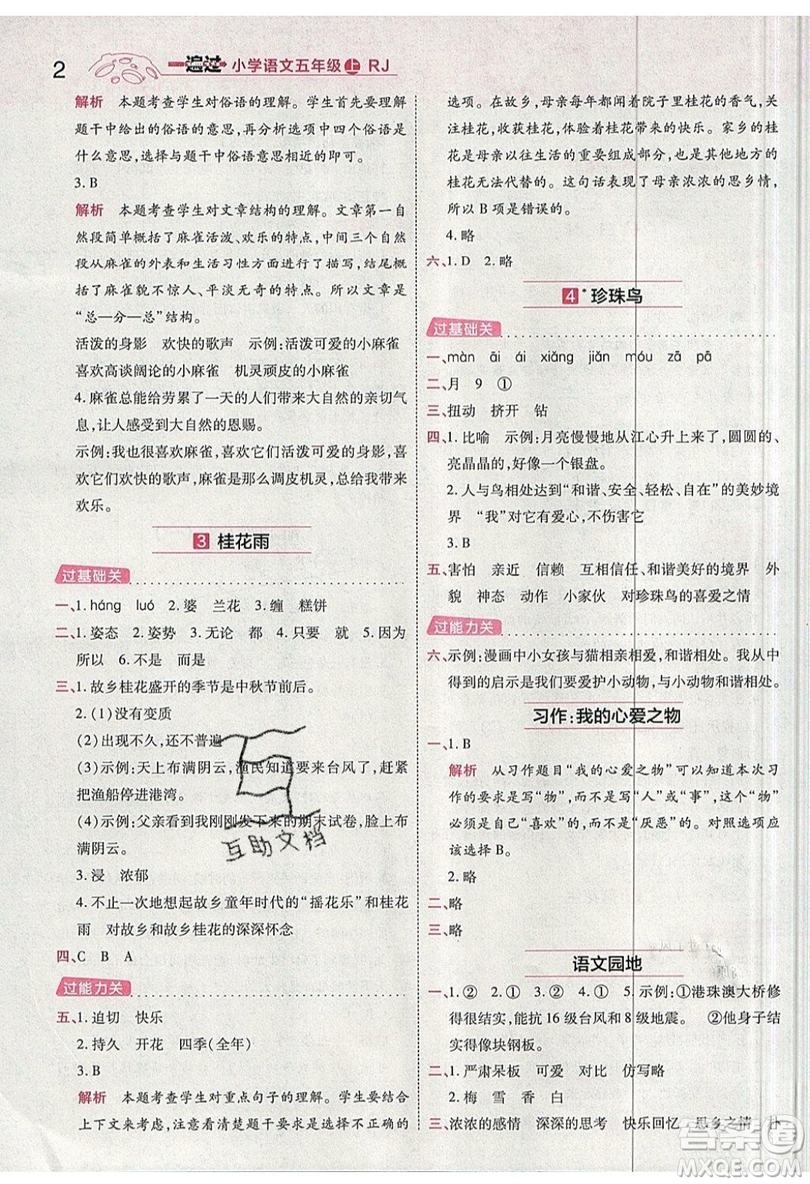 2
一遍过 小学语文五年级 上 RJ
解析 本题考查学生对俗语的理解。学生首先要理解
题干中给出的俗语的意思,再分析选项中四个俗语是
什么意思,选择与题干中俗语意思相近的即可。
3. B
解析 本题考查学生对文章结构的理解。文章第一
段简单概括了麻雀活泼、欢乐的特点,中间三个自然
段从麻雀的外表和生活习性方面进行了描写,最后
概括麻雀貌不惊人、平淡无奇的特点。所以文章是
“总—分—总”结构。
活泼的身影 欢快的歌声 示例:活泼可爱的小麻雀
喜欢高谈阔论的小麻雀 机灵顽皮的小麻雀
4. 麻雀总能给劳累了一天的人们带来大自然的亲切气
息,让人感受到大自然的恩赐。
示例:我也很喜欢麻雀,喜欢它们可爱活泼的身影,喜
欢它们欢快的歌声,麻雀总是那么调皮机灵,给人带来
欢乐。
3 桂花雨
过基础关
一、1. háng luó 2. 婆 兰花 3. 缠 糕饼
二、1. 姿态 2. 姿势 3. 无论 都 4. 只要 就 5. 因为
所以 6. 不是 而是
三、1. 故乡桂花盛开的季节是中秋节前后。
2. (1)没有变质
(2)出现不久,还不普遍
(3)示例:天上布满阴云,渔民知道要来台风了,赶紧
把渔船停进港湾。
(4)示例:父亲看到我刚刚发下来的期末试卷,脸上布
满阴云。
3. 浸 浓郁
4. 不止一次地想起故乡童年时代的“摇花乐”和桂花
雨 对故乡和故乡桂花的深深怀念
四、C B A
过能力关
五、1. 迫切 快乐
2. 持久 开花 四季(全年)
3. B
解析 本题考查学生对重点句子的理解。学生要结合
上下文来考虑,注意看清楚题干要求选择的是错误的
选项。在故乡,母亲每年都闻着院子里桂花的香气,关
注桂花,收获桂花,分享桂花带来的快乐。家乡的桂
花是母亲生活的重要组成部分,是其他地方的
桂花无法代替的。这句话表现了母亲浓浓的思乡情,
所以 B 项是错误的。
4. 略
六、1. D 2. 略
4* 珍珠鸟
过基础关
一、màn āi ái xiǎng jiǎn móu zā pā
二、月 9 ①
三、扭动 挤开 钻
四、1. 比喻 示例:月亮慢慢地从江心升上来了,圆圆的,
亮晶晶的,好像一个银盘。
2. 人与鸟相处达到“和谐、安全、轻松、自在”的美妙境
界 “我”对鸟有爱心,不伤害它
3. B
五、害怕 亲近 信赖 互相信任、和谐美好的境界 外
貌 神态 动作 小家伙 对珍珠鸟的喜爱之情
过能力关
六、示例:漫画中小女孩与猫相亲相爱,和谐相处。我从中
得到的启示是我们要爱护小动物,与小动物和谐相处。
习作:我的心爱之物
一、1. B
解析 从习作题目“我的心爱之物”可以知道本次习
作的要求是写“物”,而不是写“人”或“事”,这个“物”
必须是自己“喜欢”的,而不是“厌恶”的。对照要求应
该选择 B。
2. 略
二、略
三、略
语文园地
一、1. ② 2. ② 3. ① 4. ② 5. 示例:①港珠澳大桥修
得很结实,能抗 16 级台风和 8 级地震。 ②他身子结
实得像块钢板。
二、1. 严肃呆板 可爱 对比 仿写略
2. 梅 雪 香 白
三、浓浓的感情 深深的思考 快乐回忆 思乡之情 扑
互助文档
答案圈
MXQE.COM